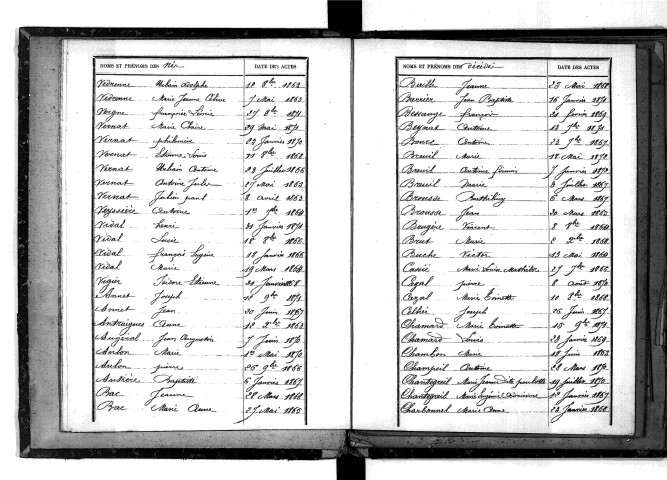 NOMS ET PRÉNOMS DES Nés DATE DES ACTES
Védrenne Urbain Adolphe 12 8bre 1862
Védrenne Marie Jeanne 7 Mai 1863
Vergne françoise 27 8bre 1871
Vernat Marie Claire 29 Mai 1870
Vernat philomène 22 Janvier 1870
Vernat Etienne Louis 1868
Vernat Urbain Antoine 23 Juillet 1866
Vernat Antoine Jules 27 Mai 1863
Vernat Julien paul 8 avril 1863
Veyssière Antoine 1er 7bre 1864
Vidal henri 31 Janvier 1871
Vidal Louise 18 8bre
Vidal françois Eugène 18 Janvier 1866
Vidal Marie 19 Mars 1864
Vigier Isidore Etienne 20 Janvier
Annet Joseph 9bre 1872
Annet Jean 30 Juin 1867
Antraigues Anne 10 Xbre 1863
Augeval Jean Augustin 7 Juin 1870
Aubon Marie 1er Mai 1870
Aubon pierre 25 9bre 1866
Autière Baptiste 6 Janvier 1867
Bac Jeanne 28 Mars 1868
Bac Marie Anne 27 Mai 1865
NOMS ET PRÉNOMS DES Décédés DATE DES ACTES
Jeanne 23 Mai 1868
Barrier Jean Baptiste 16 Janvier 1871
Bessange françois 21 février 1869
Beynat Antoine 13 7bre 1871
Antoine 23 7bre 1867
Breuil Marie 18 Mai 1870
Breuil Antoine 7 Janvier
Breuil Marie 4 Juillet 1867
Brousse Barthélémy 6 Mars 1867
Brousse Jean 30 Mars 1863
Brugère Vincent 8 8bre 1864
Brut Marie 2 Xbre 1868
Buche Victor 13 Mai 1869
Cassié Marie Louise Mathilde 27 7bre 1866
Cazal pierre 8 août
Cazal Marie Toinette 10 8bre 1868
Celhié Joseph 25 Juin 1867
Chamard Marie Toinette 15 9bre 1871
Chamard Louis 28 Janvier 1869
Chambon Marie 18 Juin 1863
Champeil Antoine 28 Mars 1870
Chantegreil Marie Jeanne dite paulette 19 Juillet 1870
Chantegreil Marie 12 Janvier 1867
Charbonnel Marie Anne 23 Janvier 1868